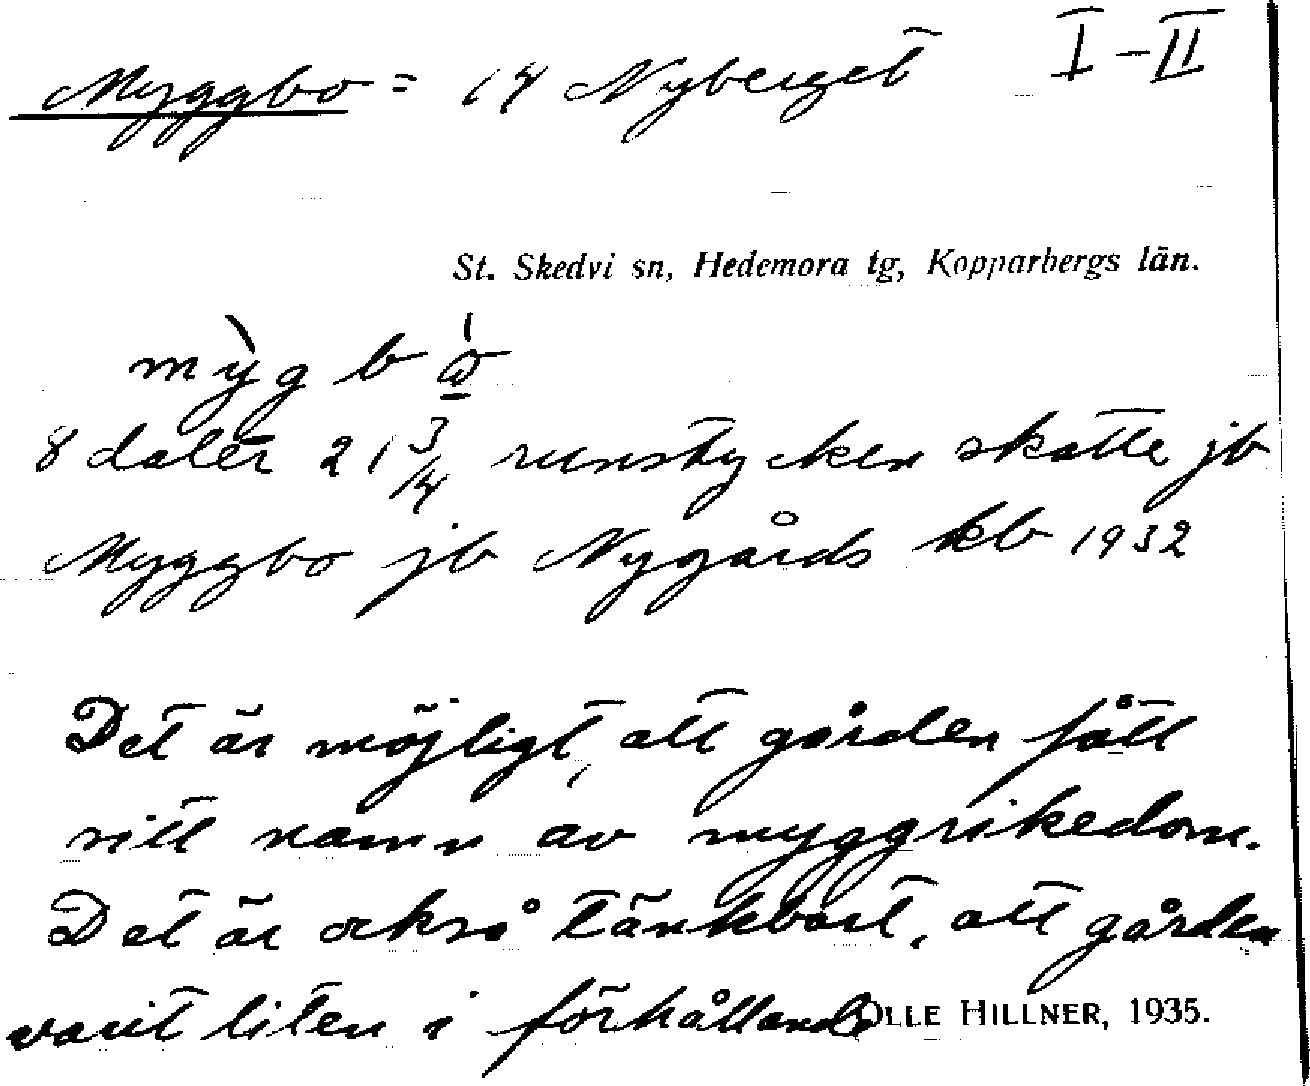 Myggbo = 14 Nyberget I–II
St. Skedvi sn, Hedemora tg, Kopparbergs län.
8 daler 21 3/4 runstycken skatte jb
Myggbo jb Nygårds kb 1932
Det är möjligt, att gården fått
sitt namn av myggrikedom.
Det är också tänkbart, att gården
varit liten i förhållande
OLLE HILLNER, 1935.